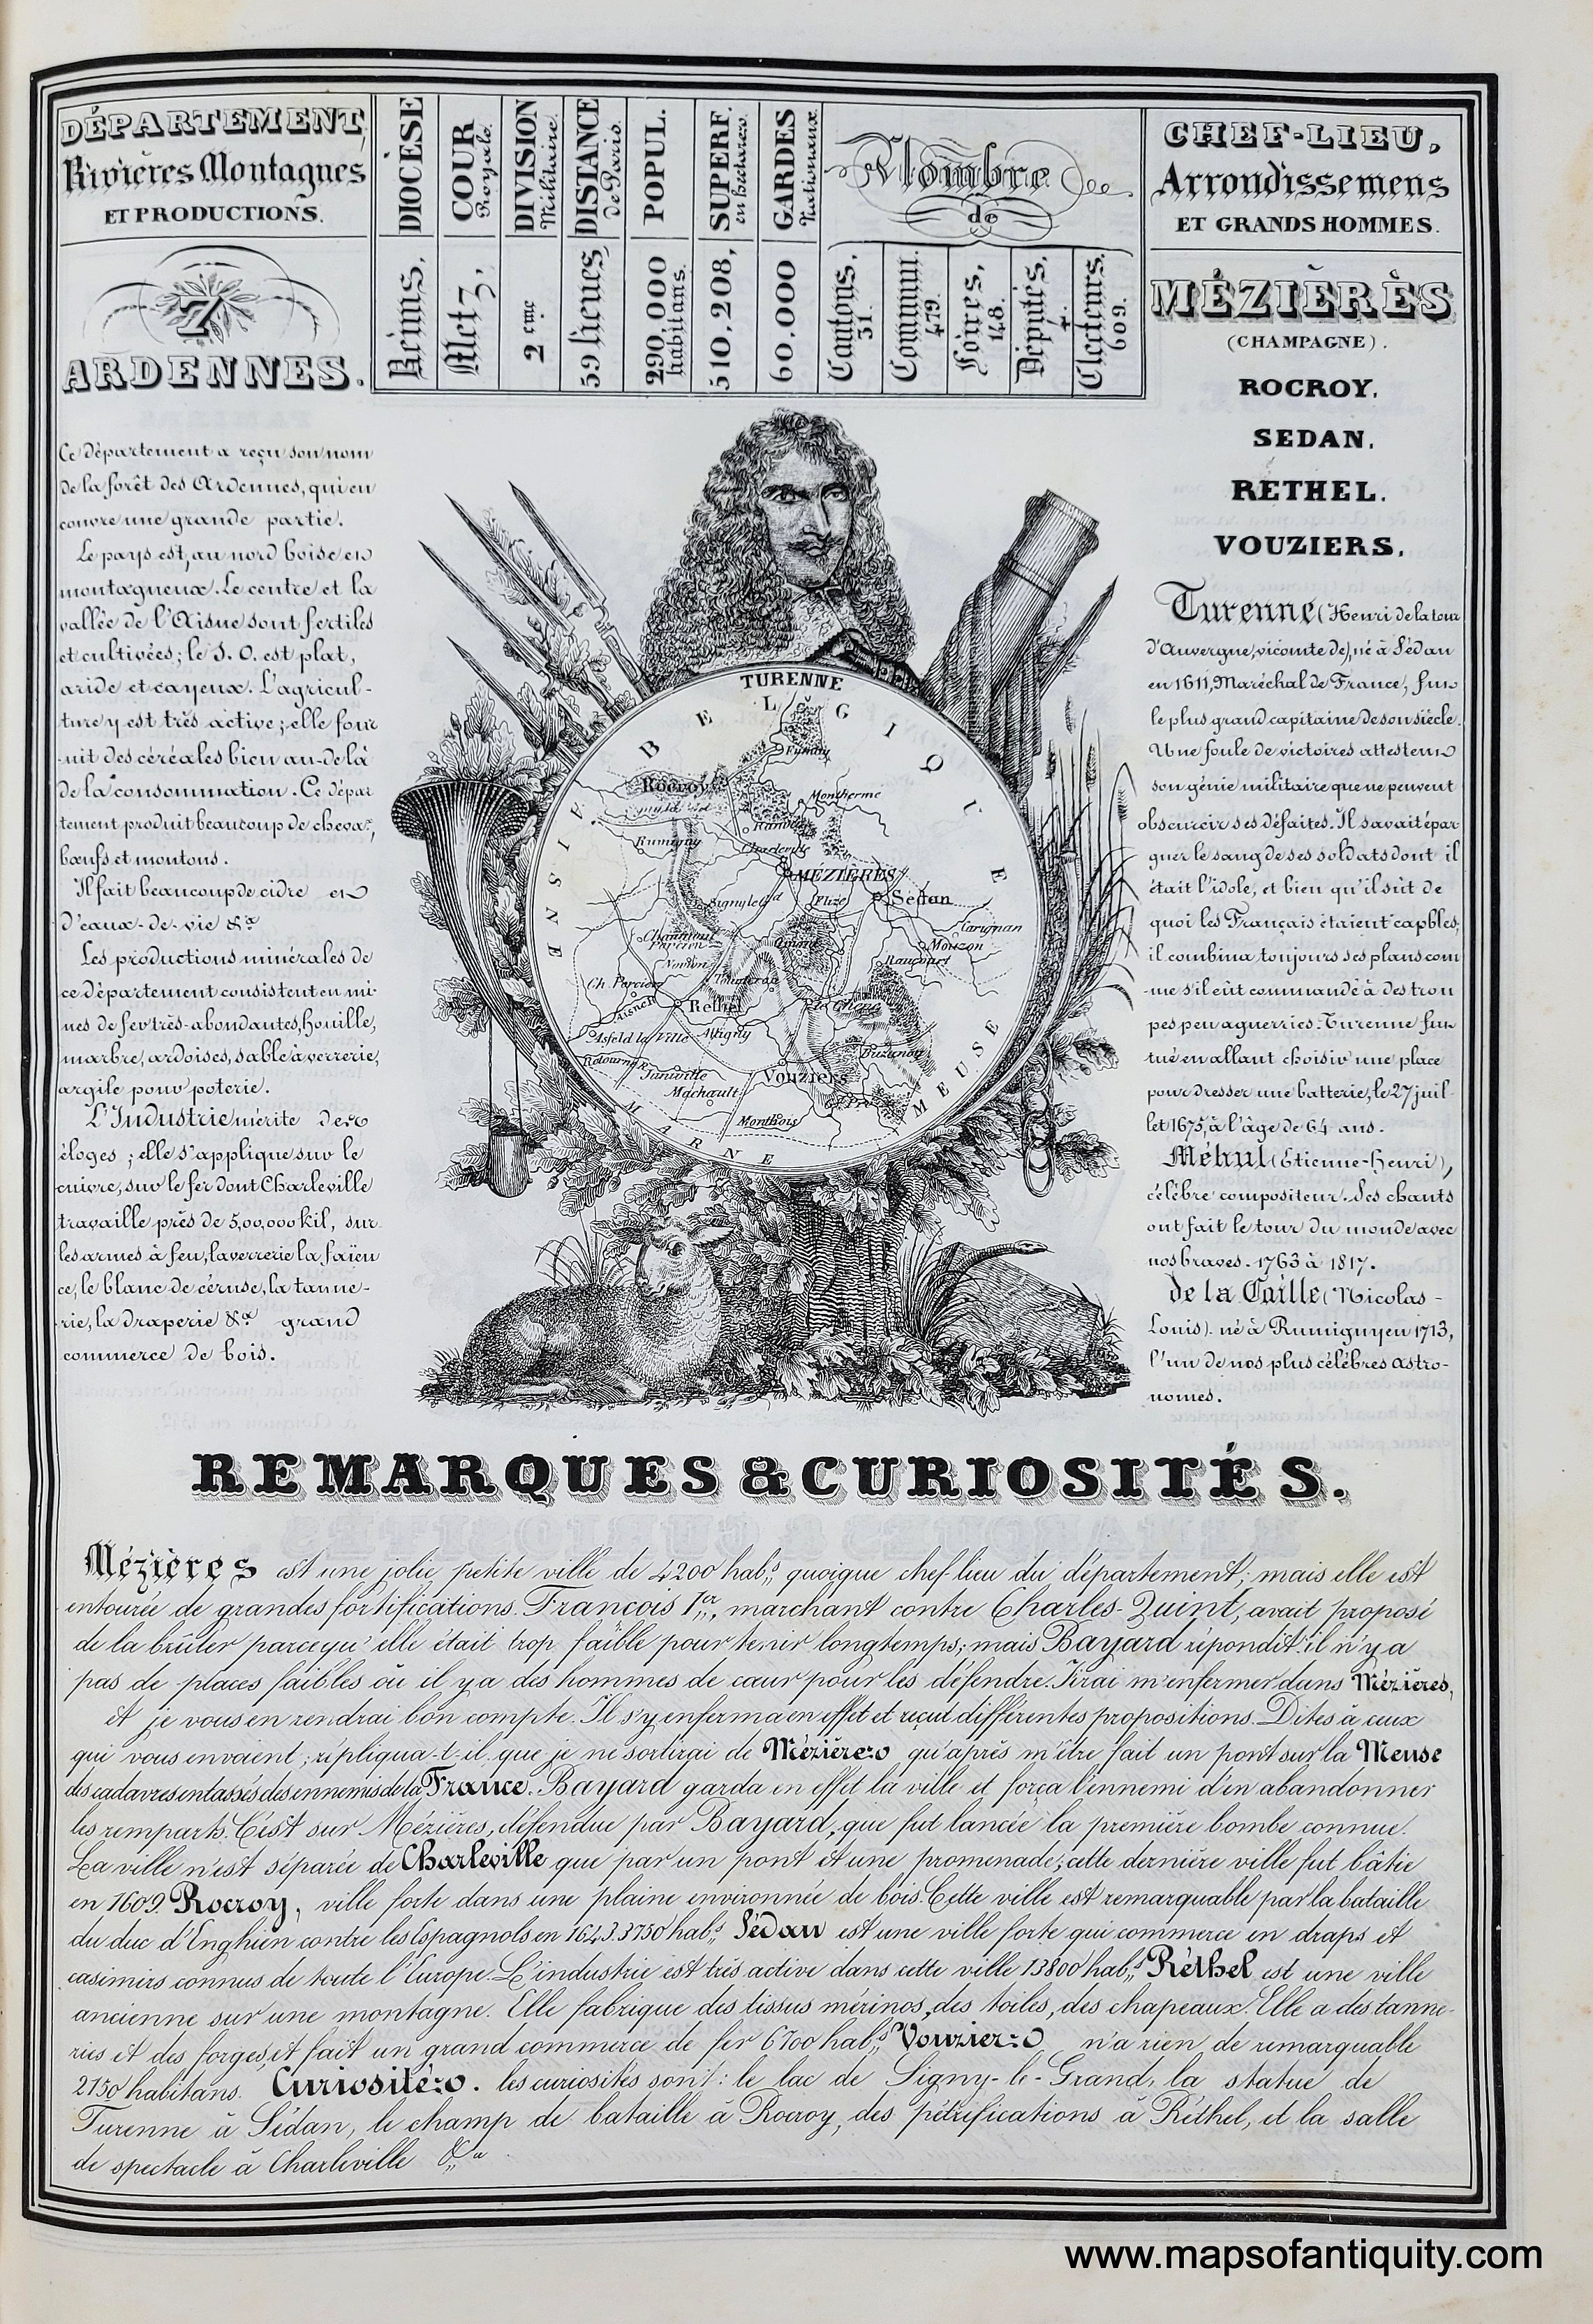 DÉPARTEMENT
Rivières Montagnes
ET PRODUCTIONS.
7
ARDENNES.
DIOCÈSE
Reims.
COUR
Royale.
Metz,
DIVISION
Militaire.
2 eme
DISTANCE
de Paris.
59 lieues
POPUL.
290,000
habitans.
SUPERF.
en hectares.
510,208,
GARDES
Nationaux.
60,000
Nombre
de
Cantons,
31.
Commun.
479.
Foires,
148.
Députés,
4.
Electeurs.
609.
CHEF-LIEU,
Arrondissemens
ET GRANDS HOMMES.
MÉZIÈRES
(CHAMPAGNE).
ROCROY.
SEDAN.
RETHEL.
VOUZIERS.
Ce département a reçu son nom
de la forêt des Ardennes, qui en
couvre une grande partie.
Le pays est, au nord boisé en
montagneux. Le centre et la
vallée de l'Aisne sont fertiles
et cultivées; le S. O. est plat,
aride et cayeux. L'agricul-
ture y est très active; elle four
nit des céréales bien au-delà
de la consommation. Ce dépar
tement produit beaucoup de chevax,
bœufs et moutons.
Il fait beaucoup de cidre en
d'eaux-de-vie &a
Les productions minérales de
ce département consistent en mi-
nes de fer très-abondantes, houille,
marbre, ardoises, sable à verrerie,
argile pour poterie.
L'Industrie mérite des
éloges; elle s'applique sur le
cuivre, sur le fer dont Charleville
travaille près de 5,00,000 kil, sur
les armes à feu, la verrerie la faïen
ce, le blanc de céruse, la tanne-
rie, la draperie &a grand
commerce de bois.
TURENNE
BELGIQUE
MEUSE
MARNE
ENSIF
Fumay
Rocroy
Monthermé
Renwez
Rumigny
Charleville
MÉZIÈRES
Signy le Gd
Flize
Sedan
Carignan
Mouzon
Raucourt
Chaumont
Porcien
Omont
Novion
Ch. Porcien
Tourteron
Aisne R
Rethel
le Chêne
Asfeld la Ville
Attigny
Buzancy
Juniville
Vouziers
Machault
Gd Pré
Monthois
Turenne (Henri de la tour
d'Auvergne, vicomte de), né à Sédan
en 1611, Maréchal de France, fut
le plus grand capitaine de son siècle.
Une foule de victoires attestent
son génie militaire que ne peuvent
obscurcir ses défaites. Il savait épar
gner le sang de ses soldats dont il
était l'idole, et bien qu'il sût de
quoi les Français étaient capbles,
il combina toujours ses plans com
-me s'il eût commandé à des trou
pes peu aguerries. Turenne fut
tué en allant choisir une place
pour dresser une batterie, le 27 juil-
let 1675, à l'âge de 64 ans.
Méhul (Etienne-Henri),
célèbre compositeur. Ses chants
ont fait le tour du monde avec
nos braves. 1763 à 1817.
de la Caille (Nicolas-
Louis). né à Rumigny en 1713,
l'un de nos plus célèbres astro-
nomes.
REMARQUES & CURIOSITÉS.
Mézières est une jolie petite ville de 4200 habs,, quoique chef-lieu du département; mais elle est
entourée de grandes fortifications. François 1er,, marchant contre Charles-Quint, avait proposé
de la brûler parcequ'elle était trop faible pour tenir longtemps; mais Bayard répondit: il n'y a
pas de places faibles où il y a des hommes de cœur pour les défendre. J'irai m'enfermer dans Mézières,
et je vous en rendrai bon compte. Il s'y enferma en effet et reçut différentes propositions. Dites à ceux
qui vous envoient; répliqua-t-il, que je ne sortirai de Mézières qu'après m'être fait un pont sur la Meuse
des cadavres entassés des ennemis de la France. Bayard garda en effet la ville et força l'ennemi d'en abandonner
les remparts. C'est sur Mézières, défendue par Bayard, que fut lancée la première bombe connue.
La ville n'est séparée de Charleville que par un pont et une promenade; cette dernière ville fut bâtie
en 1609. Rocroy, ville forte dans une plaine environnée de bois. Cette ville est remarquable par la bataille
du duc d'Enghien contre les Espagnols en 1643. 3750 habs,, Sédan est une ville forte qui commerce en draps et
casimirs connus de toute l'Europe. L'industrie est très active dans cette ville 13800 habs,, Réthel est une ville
ancienne sur une montagne. Elle fabrique des tissus mérinos, des toiles, des chapeaux. Elle a des tanne-
ries et des forges, et fait un grand commerce de fer 6700 habs,, Vouziers n'a rien de remarquable
2150 habitans. Curiosités. les curiosités sont: le lac de Signy-le-Grand, la statue de
Turenne à Sédan, le champ de bataille à Rocroy, des pétrifications à Réthel, et la salle
de spectacle à Charleville &a
www.mapsofantiquity.com